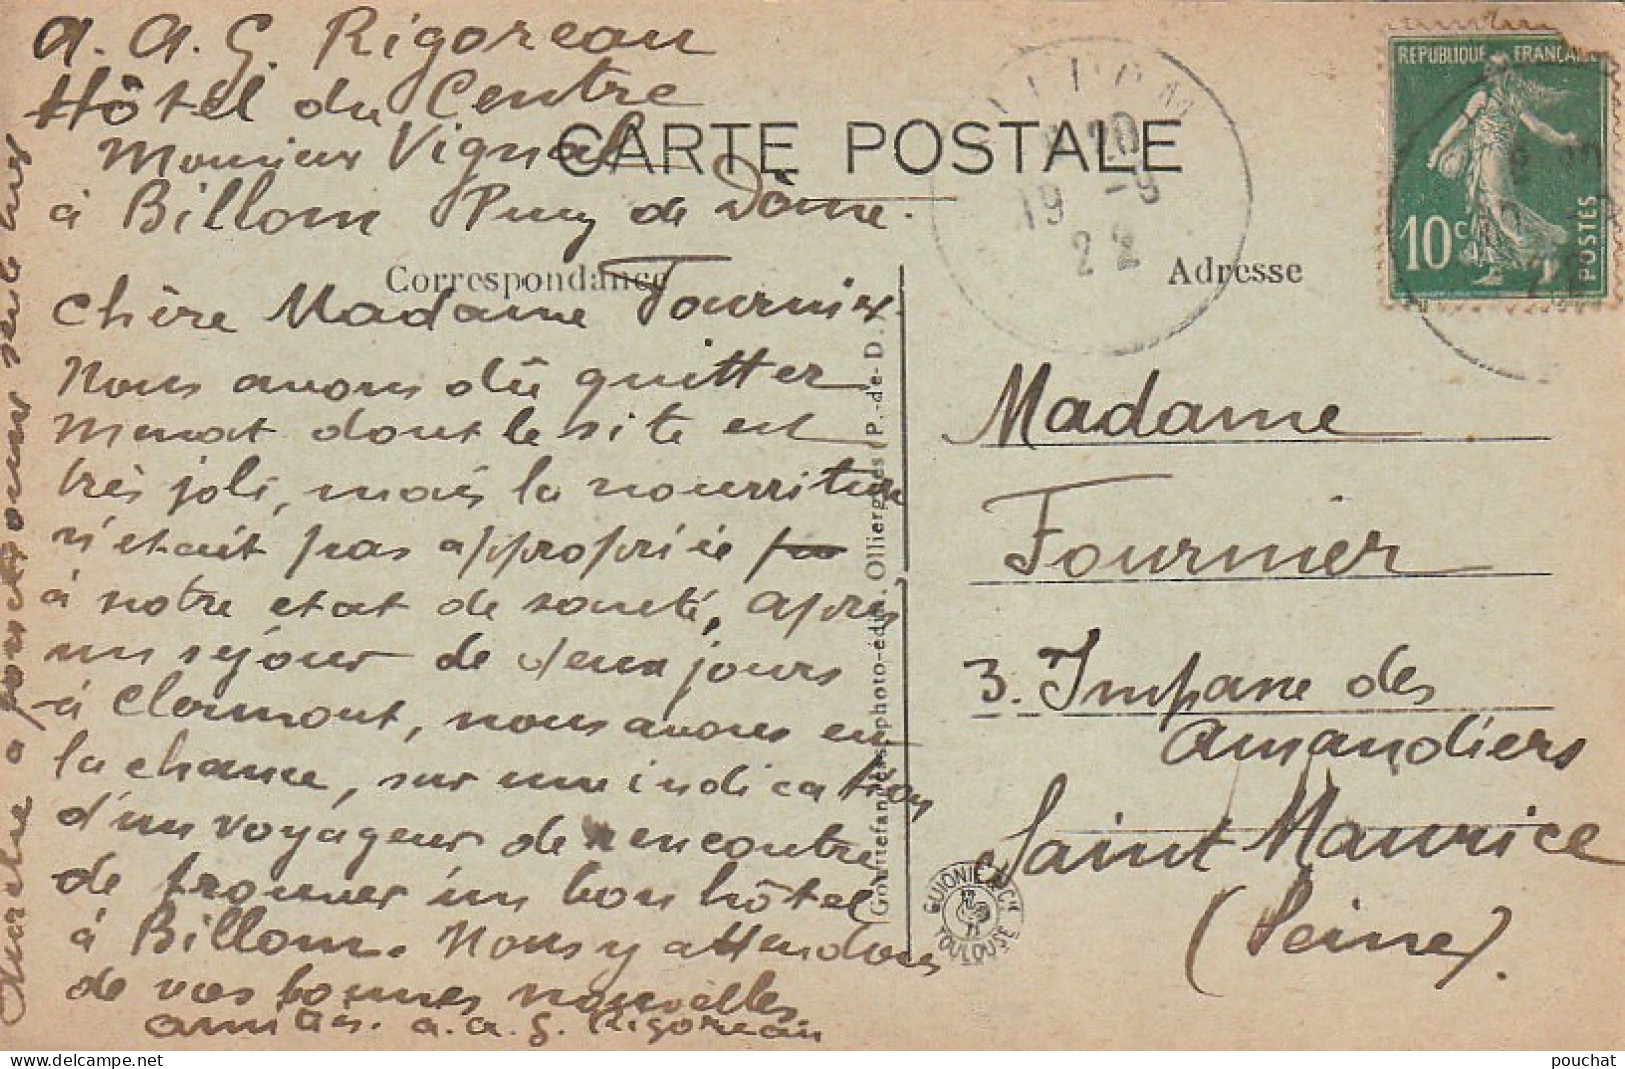 a. a. G. Rigoreau
Hôtel du Centre
Monsieur Vignal
à Billom Puy de Dôme.
CARTE POSTALE
Correspondance
Adresse
REPUBLIQUE FRANÇAISE
10c
POSTES
20
19 -9
22
chère Madame Fournier.
Nous avons dû quitter
Menat dont le site est
très joli, mais la nourriture
n'était pas appropriée
à notre etat de santé, après
un séjour de deux jours
à Clermont, nous avons eu
la chance, sur une indication
d'un voyageur de rencontre
de trouver un bon hôtel
à Billom. Nous y attendons
de vos bonnes nouvelles
amitiés. a. a. G. Rigoreau
Madame
Fournier
3. Impasse des
Amandiers
Saint Maurice
(Seine).
Gouttefangeas, photo-édit., Olliergues (P.-de-D.)
GUIONIE & CH
TOULOUSE
pouchat